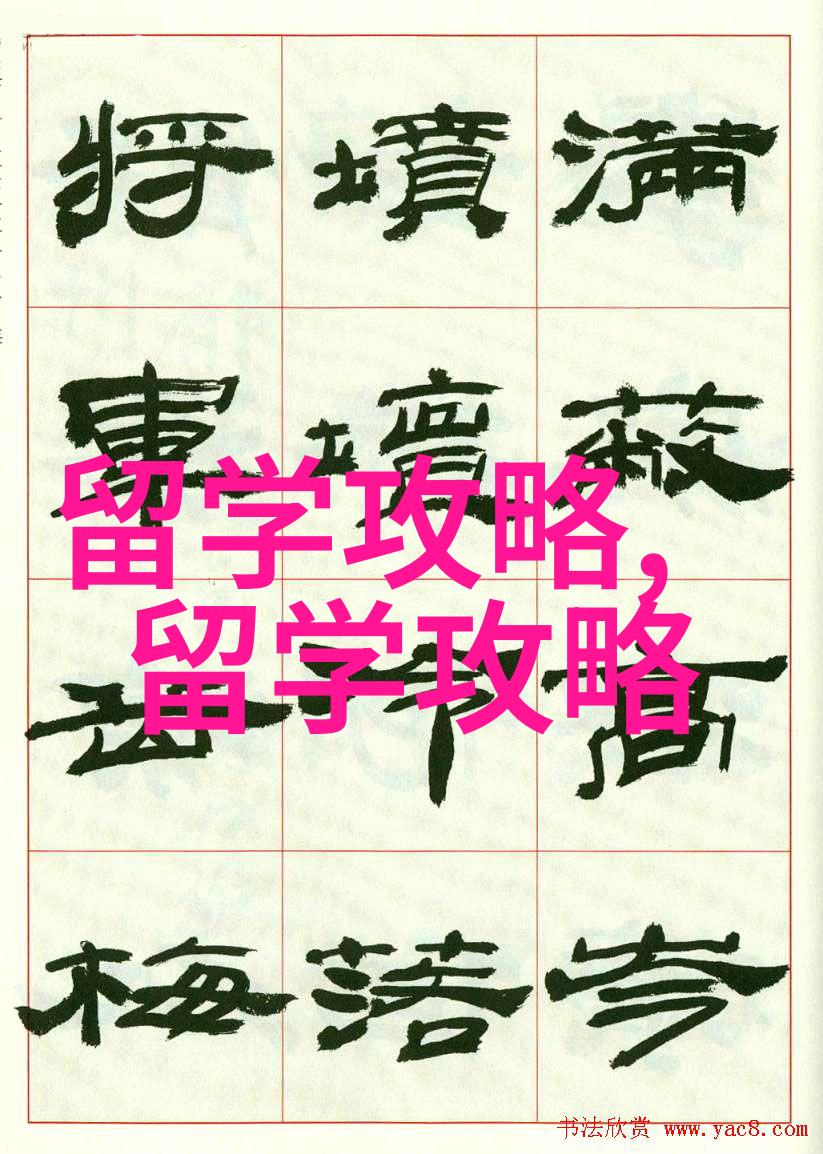 滿蔽高岑
墳落
將軍梅
留学攻略,
留学攻略
书法欣赏 www.yac8.com